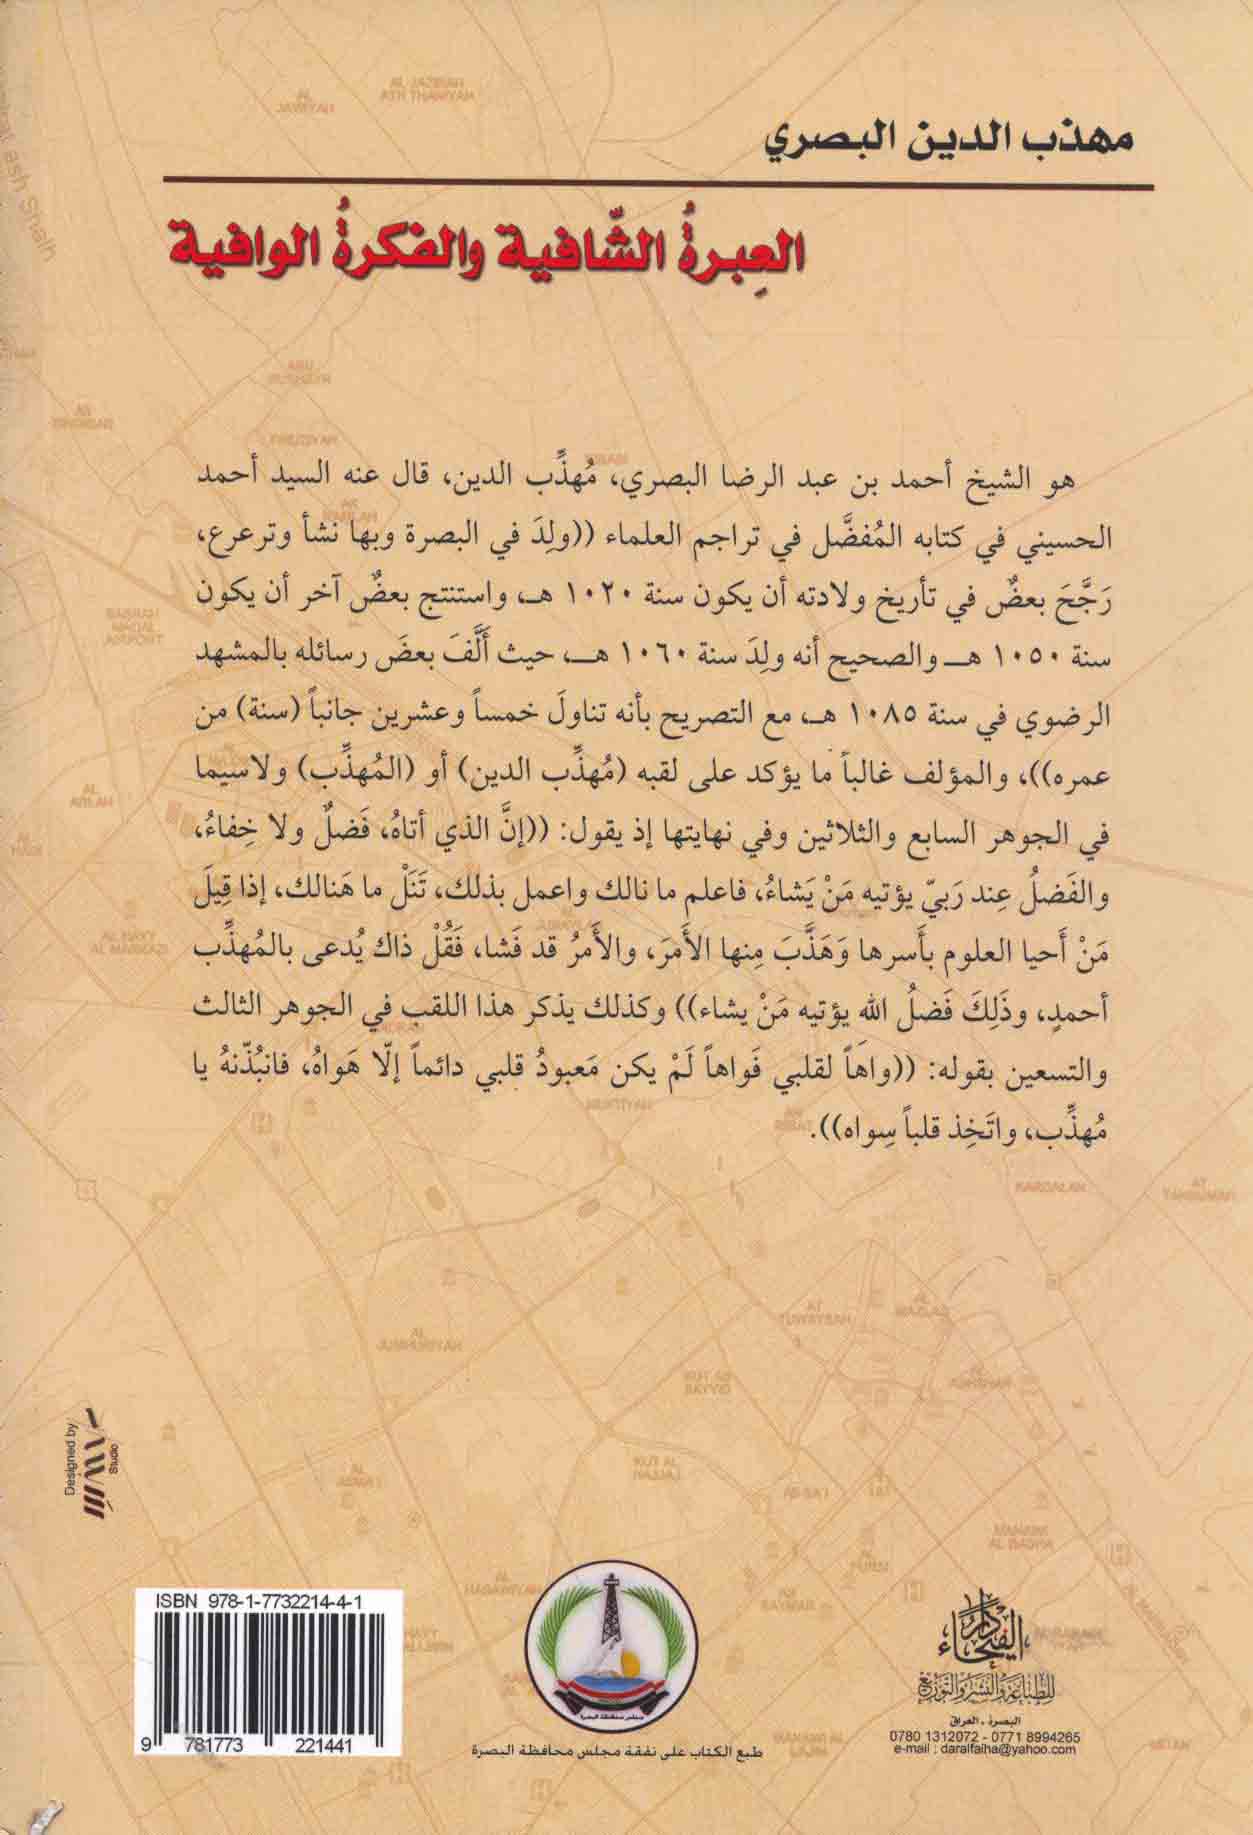 مهذب الدين البصري
العِبرةُ الشّافية والفكرةُ الوافية
هو الشيخ أحمد بن عبد الرضا البصري، مُهذِّب الدين، قال عنه السيد أحمد
الحسيني في كتابه المُفضَّل في تراجم العلماء ((ولِدَ في البصرة وبها نشأ وترعرع،
رَجَّحَ بعضٌ في تأريخ ولادته أن يكون سنة ١٠٢٠ هـ، واستنتج بعضٌ آخر أن يكون
سنة ١٠٥٠ هـ والصحيح أنه ولِدَ سنة ١٠٦٠ هـ، حيث ألَّفَ بعضَ رسائله بالمشهد
الرضوي في سنة ١٠٨٥ هـ، مع التصريح بأنه تناولَ خمساً وعشرين جانباً (سنة) من
عمره))، والمؤلف غالباً ما يؤكد على لقبه (مُهذِّب الدين) أو (المُهذِّب) ولاسيما
في الجوهر السابع والثلاثين وفي نهايتها إذ يقول: ((إنَّ الذي أتاهُ، فَضلٌ ولا خِفاءُ،
والفَضلُ عِند رَبيّ يؤتيه مَنْ يَشاءُ، فاعلم ما نالك واعمل بذلك، تَنَلْ ما هَنالك، إذا قِيلَ
مَنْ أَحيا العلوم بأَسرها وَهَذَّبَ مِنها الأَمرَ، والأَمرُ قد فَشا، فَقُلْ ذاك يُدعى بالمُهذِّب
أحمدٍ، وذَلِكَ فَضلُ الله يؤتيه مَنْ يشاء)) وكذلك يذكر هذا اللقب في الجوهر الثالث
والتسعين بقوله: ((واهَاً لقلبي فَواهاً لَمْ يكن مَعبودُ قلبي دائماً إلّا هَواهُ، فانبُذْنهُ يا
مُهذِّب، واتَخِذ قلباً سِواه)).
Designed by
Studio
ISBN 978-1-7732214-4-1
9 781773 221441
طبع الكتاب على نفقة مجلس محافظة البصرة
دار الفيحاء
للطباعة والنشر والتوزيع
البصرة ـ العراق
0780 1312072 - 0771 8994265
e-mail ; daralfaiha@yahoo.com